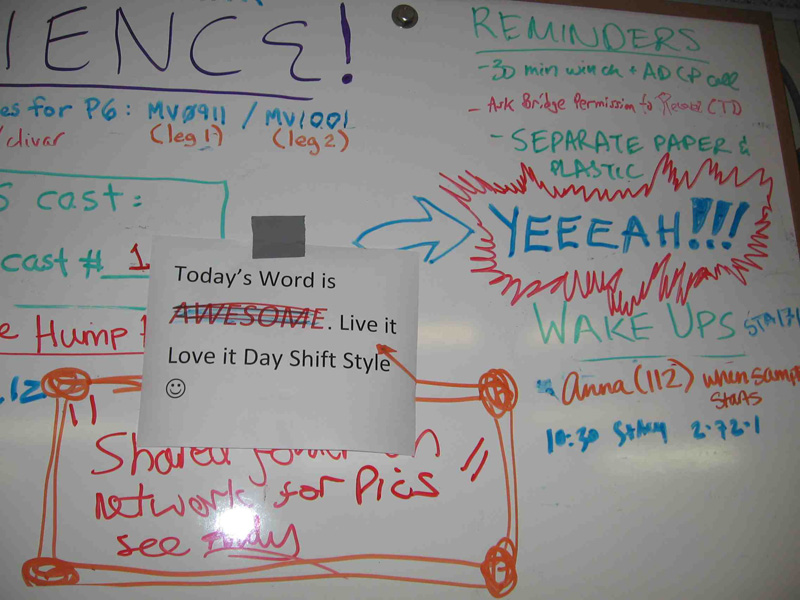 IENCE!
es for P6: MV0911 / MV1001
/clivar (leg 1) (leg 2)
S cast:
cast # 1
e Hump
.12
Today's Word is
AWESOME. Live it
Love it Day Shift Style
☺
"Shared folder on
network for Pics"
see
REMINDERS
- 30 min winch + ADCP call
- Ask Bridge Permission to CTD
- SEPARATE PAPER &
PLASTIC
YEEEAH!!!
WAKE UPS STA 131
Anna (112) when sampl
starts
10:30 2-72-1